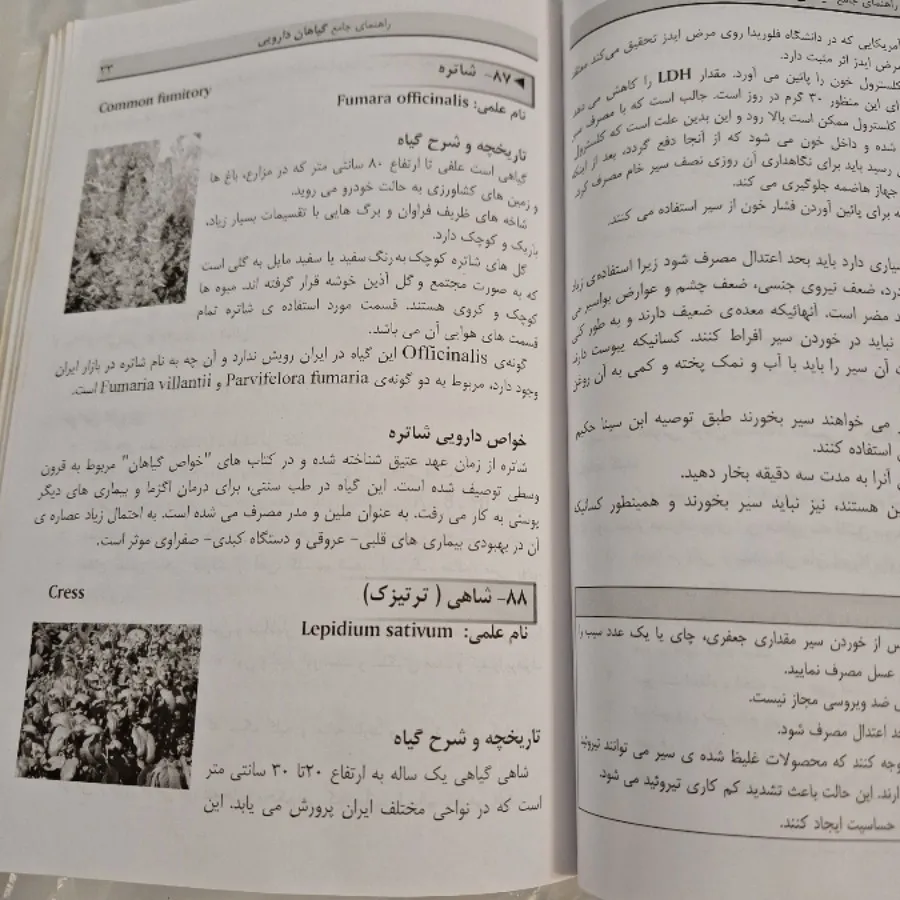 راهنمای جامع گیاهان دارویی
۸۷- شاتره
نام علمی: Fumara officinalis
Common fumitory
تاریخچه و شرح گیاه
گیاهی است علفی تا ارتفاع ۸۰ سانتی متر که در مزارع، باغ ها
و زمین های کشاورزی به حالت خودرو می روید.
شاخه های ظریف فراوان و برگ هایی با تقسیمات بسیار زیاد،
باریک و کوچک دارد.
گل های شاتره کوچک به رنگ سفید یا سفید مایل به گلی است
که به صورت مجتمع و گل آذین خوشه قرار گرفته اند. میوه ها
کوچک و کروی هستند. قسمت مورد استفاده ی شاتره تمام
قسمت های هوایی آن می باشد.
گونه‌ی Officinalis این گیاه در ایران رویش ندارد و آن چه به نام شاتره در بازار ایران
وجود دارد، مربوط به دو گونه‌ی Parvifelora fumaria و Fumaria villantii است.
خواص دارویی شاتره
شاتره از زمان عهد عتیق شناخته شده و در کتاب های "خواص گیاهان" مربوط به قرون
وسطی توصیف شده است. این گیاه در طب سنتی، برای درمان اگزما و بیماری های دیگر
پوستی به کار می رفت. به عنوان ملین و مدر مصرف می شده است. به احتمال زیاد عصاره ی
آن در بهبودی بیماری های قلبی- عروقی و دستگاه کبدی- صفراوی موثر است.
۸۸- شاهی ( ترتیزک)
Cress
نام علمی: Lepidium sativum
تاریخچه و شرح گیاه
شاهی گیاهی یک ساله به ارتفاع ۲۰تا ۳۰ سانتی متر
است که در نواحی مختلف ایران پرورش می یابد. این
راهنمای جامع
آمریکایی که در دانشگاه فلوریدا روی مرض ایدز تحقیق می‌کند
مرض ایدز اثر مثبت دارد.
کلسترول خون را پائین می آورد. مقدار LDH را کاهش می دهد
ای این منظور ۳۰ گرم در روز است. جالب است که با مصرف سیر
کلسترول ممکن است بالا رود و این بدین علت است که کلسترول
شده و داخل خون می شود که از آنجا دفع گردد، بعد از اینکه
رسید باید برای نگاهداری آن روزی نصف سیر خام مصرف کرد
جهاز هاضمه جلوگیری می کند.
که برای پائین آوردن فشار خون از سیر استفاده می کنند.
سیاری دارد باید بحد اعتدال مصرف شود زیرا استفاده‌ی زیاد
درد، ضعف نیروی جنسی، ضعف چشم و عوارض بواسیر می
مضر است. آنهائیکه معده‌ی ضعیف دارند و به طور کلی
نباید در خوردن سیر افراط کنند. کسانیکه یبوست دارند
آن سیر را باید با آب و نمک پخته و کمی به آن روغن
می خواهند سیر بخورند طبق توصیه ابن سینا حکیم
استفاده کنند.
آنرا به مدت سه دقیقه بخار دهید.
هستند، نیز نباید سیر بخورند و همینطور کسانیکه
س از خوردن سیر مقداری جعفری، چای یا یک عدد سیب را
عسل مصرف نمایید.
ضد ویروسی مجاز نیست.
حد اعتدال مصرف شود.
توجه کنند که محصولات غلیظ شده ی سیر می توانند تیروئید
دارند. این حالت باعث تشدید کم کاری تیروئید می شود.
حساسیت ایجاد کنند.